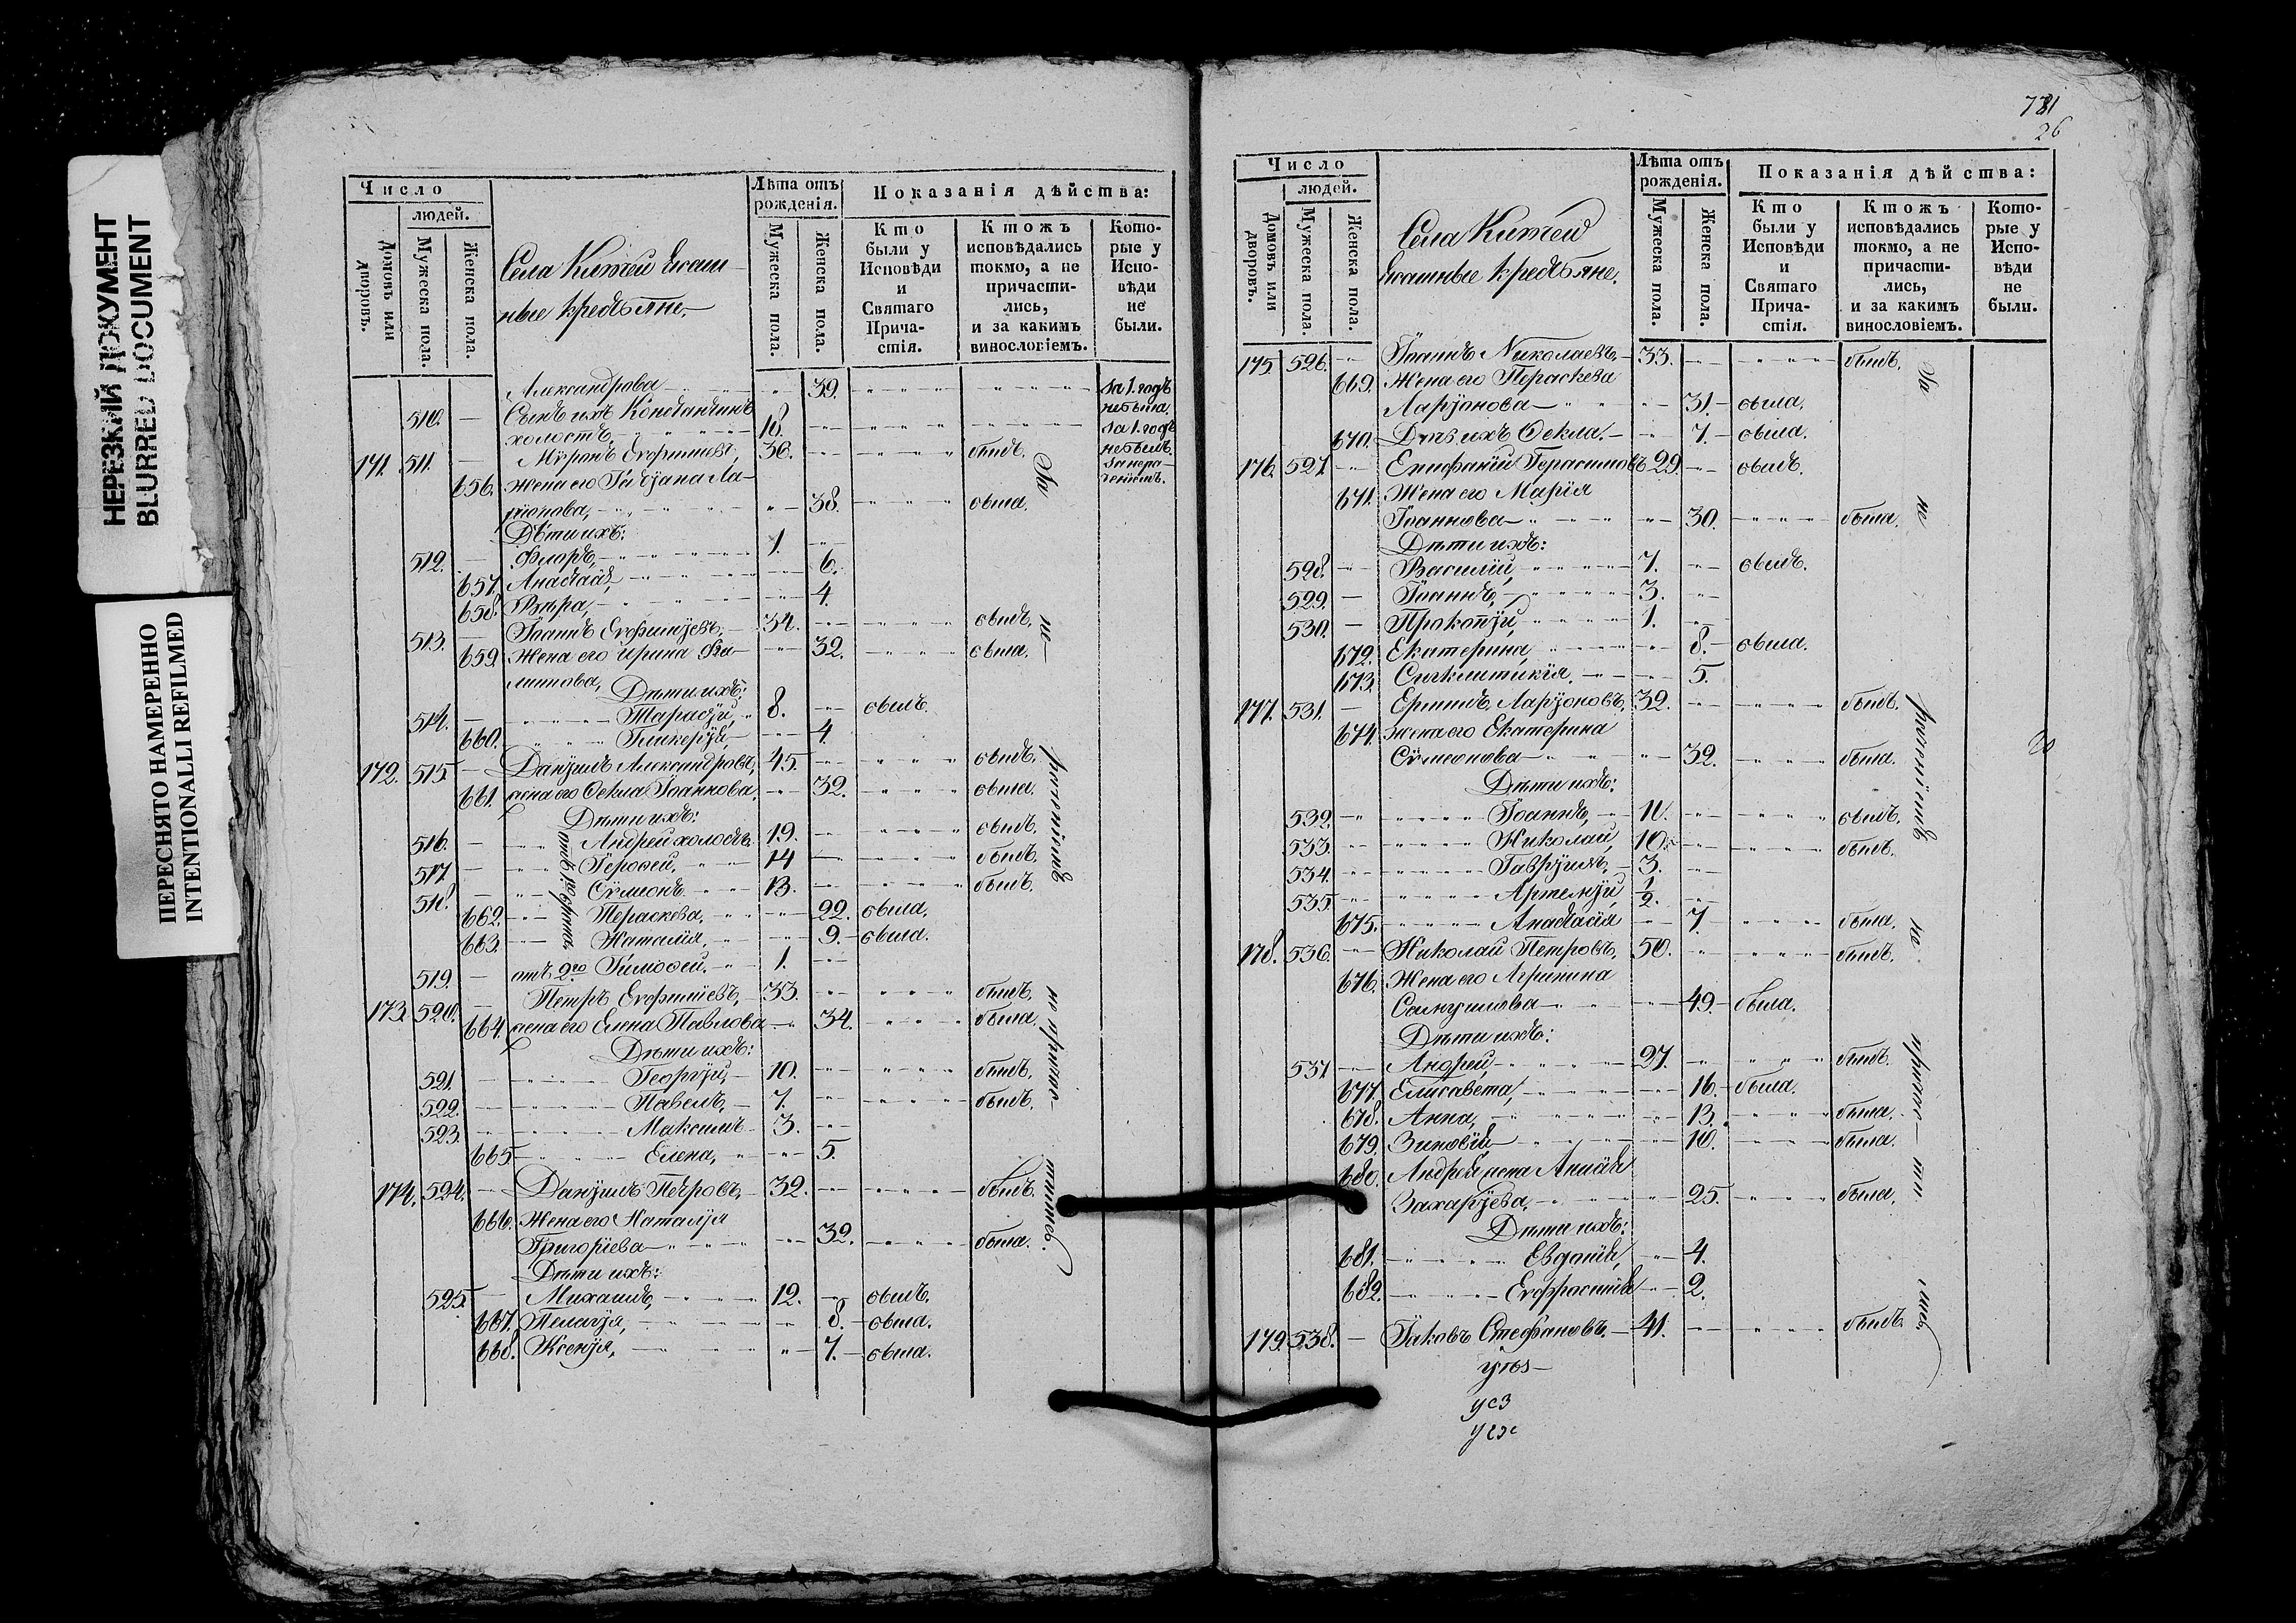 НЕРЕЗКИЙ ДОКУМЕНТ
BLURRED DOCUMENT
ПЕРЕСНЯТО НАМЕРЕННО
INTENTIONALLI REFILMED
Число
людей.
Домовъ или дворовъ.
Мужеска пола.
Женска пола.
Села Китей Ясаш-
ные крестьяне.
Лѣта отъ рожденія.
Мужеска пола.
Женска пола.
Показанія дѣйства:
Кто были у Исповѣди и Святаго Прича-стія.
Ктожъ исповѣдались токмо, а не причасти-лись, и за какимъ винословіемъ.
Кото-рые у Испо-вѣди не были.
Александрова 39. за 1. годъ не была.
510. Сынъ ихъ Константинъ
холостъ 18. за 1. годъ не былъ
171. 511. Миронъ Евфимиевъ, 36. былъ.
656. Жена его Татіана Ла-
ріонова, 38. была.
Дѣти ихъ:
512. Флоръ, 1.
657. Анастасія, 6.
658. Вѣра, 4.
513. Іоаннъ Евфиміевъ, 34. былъ.
659. Жена его Ирина 32. была.
Дѣти ихъ:
514. Тарасій, 8. былъ.
660. Гликерія, 4.
172. 515. Даніилъ Александровъ, 45. былъ.
661. жена его Ѳекла Іоаннова, 32. была.
Дѣти ихъ:
516. Андрей холостъ 19. былъ.
517. Героѳей, 14 былъ.
518. Сѵмеонъ 13. былъ.
662. Параскева, 22. была.
663. Наталія, 9. была.
519. отъ 2го Тимоѳей. 1.
173. 520. Петръ Евфиміевъ, 33. былъ.
664. жена его Елена Павлова 34. была.
Дѣти ихъ:
521. Георгій, 10. былъ.
522. Павелъ, 7. былъ.
523. Максимъ 3.
665 Елена, 5.
174. 524. Даніилъ Петровъ, 32. былъ.
666. Жена его Наталія
Григоріева 32. была.
Дѣти ихъ:
525. Михаилъ, 12. былъ.
667. Пелагія, 8. была.
668. Ксенія, 7. была.
За не-
раченіемъ
не причас-
тились.
781
26
Число
людей.
Домовъ или дворовъ.
Мужеска пола.
Женска пола.
Села Китей
Ясашные крестьяне.
Лѣта отъ рожденія.
Мужеска пола.
Женска пола.
Показанія дѣйства:
Кто были у Исповѣди и Святаго Прича-стія.
Ктожъ исповѣдались токмо, а не причасти-лись, и за какимъ винословіемъ.
Кото-рые у Испо-вѣди не были.
175. 526. Іоаннъ Николаевъ, 33. былъ.
669. Жена его Параскева
Ларіонова 31. была.
670. Дочь ихъ Ѳекла. 7. была.
176. 527. Епифаній Герасимовъ 29. былъ.
671. Жена его Марія
Іоаннова 30. была.
Дѣти ихъ:
528. Василій, 7. былъ.
529. Іоаннъ, 3.
530. Прокопій, 1.
672. Екатерина, 8. была.
673. Сигклитикія. 5.
177. 531. Ермилъ Ларіоновъ, 32. былъ.
674. жена его Екатерина
Сѵмеонова 32. была.
Дѣти ихъ:
532. Іоаннъ, 11. былъ.
533. Николай, 10. былъ.
534. Гавріилъ, 3.
535. Артемій, 1/2.
675. Анастасія 7. была.
178. 536. Николай Петровъ, 50. былъ.
676. Жена его Агрипина
Самуилова 49. была.
Дѣти ихъ:
537 Андрей 27. былъ.
677. Елисавета, 16. была.
678. Анна, 13. была.
679. Зиновія 10. была.
680. Андрея жена
Захаріева, 25. была.
Дѣти ихъ:
681. Евдокія, 4.
682. Евфросинія 2.
179. 538. Іаковъ Стефановъ 41. былъ.
За не
раченіемъ
не причас-ти-
лись